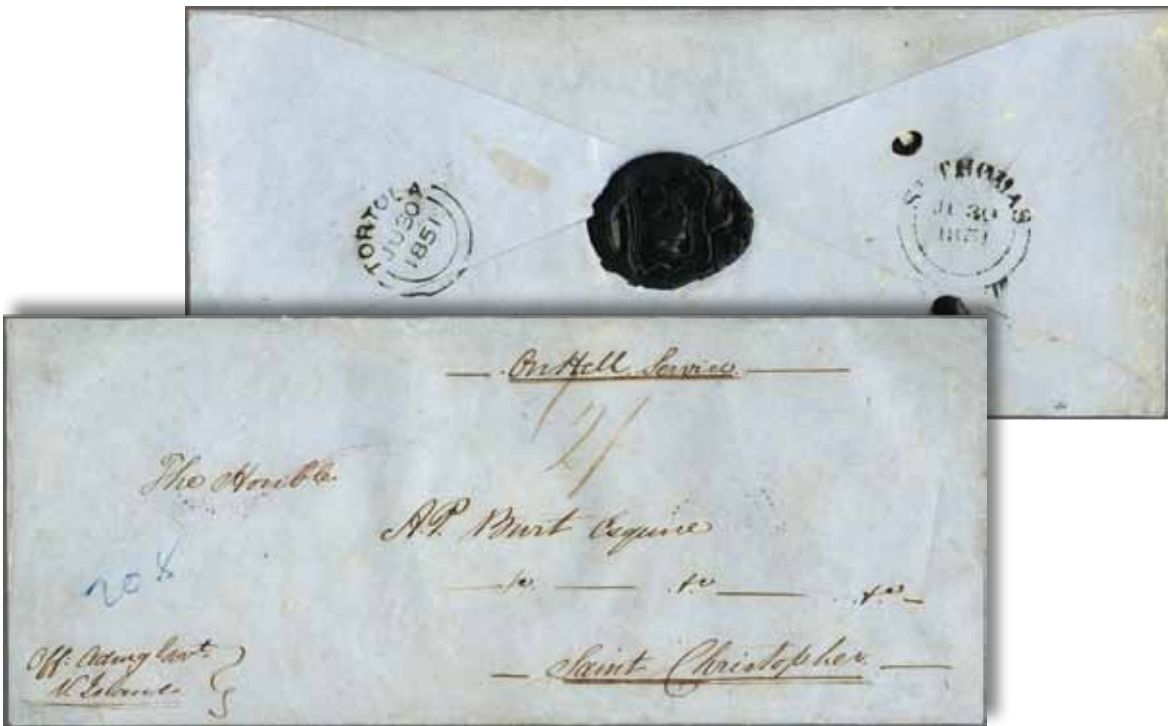 TORTOLA
JU 30
1851
ST THOMAS
JU 30
1851
On H M Service
2/
The Honble
A.P. Burt Esquire
&c &c &c
Saint Christopher
Off: Admg Govt.
V. Islands